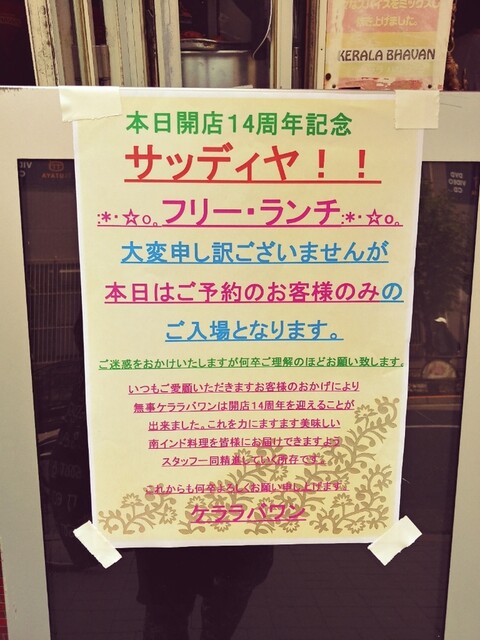 なスパイスをミックスし
き上げました。
KERALA BHAVAN
本日開店14周年記念
サッディヤ！！
:*･☆o。フリー・ランチ:*･☆o。
大変申し訳ございませんが
本日はご予約のお客様のみの
ご入場となります。
ご迷惑をおかけいたしますが何卒ご理解のほどお願い致します。
いつもご愛顧いただきますお客様のおかげにより
無事ケララバワンは開店14周年を迎えることが
出来ました。これを力にますます美味しい
南インド料理を皆様にお届けできますよう
スタッフ一同精進していく所存です。
これからも何卒よろしくお願い申し上げます。
ケララバワン
DVD
VIDEO
CD